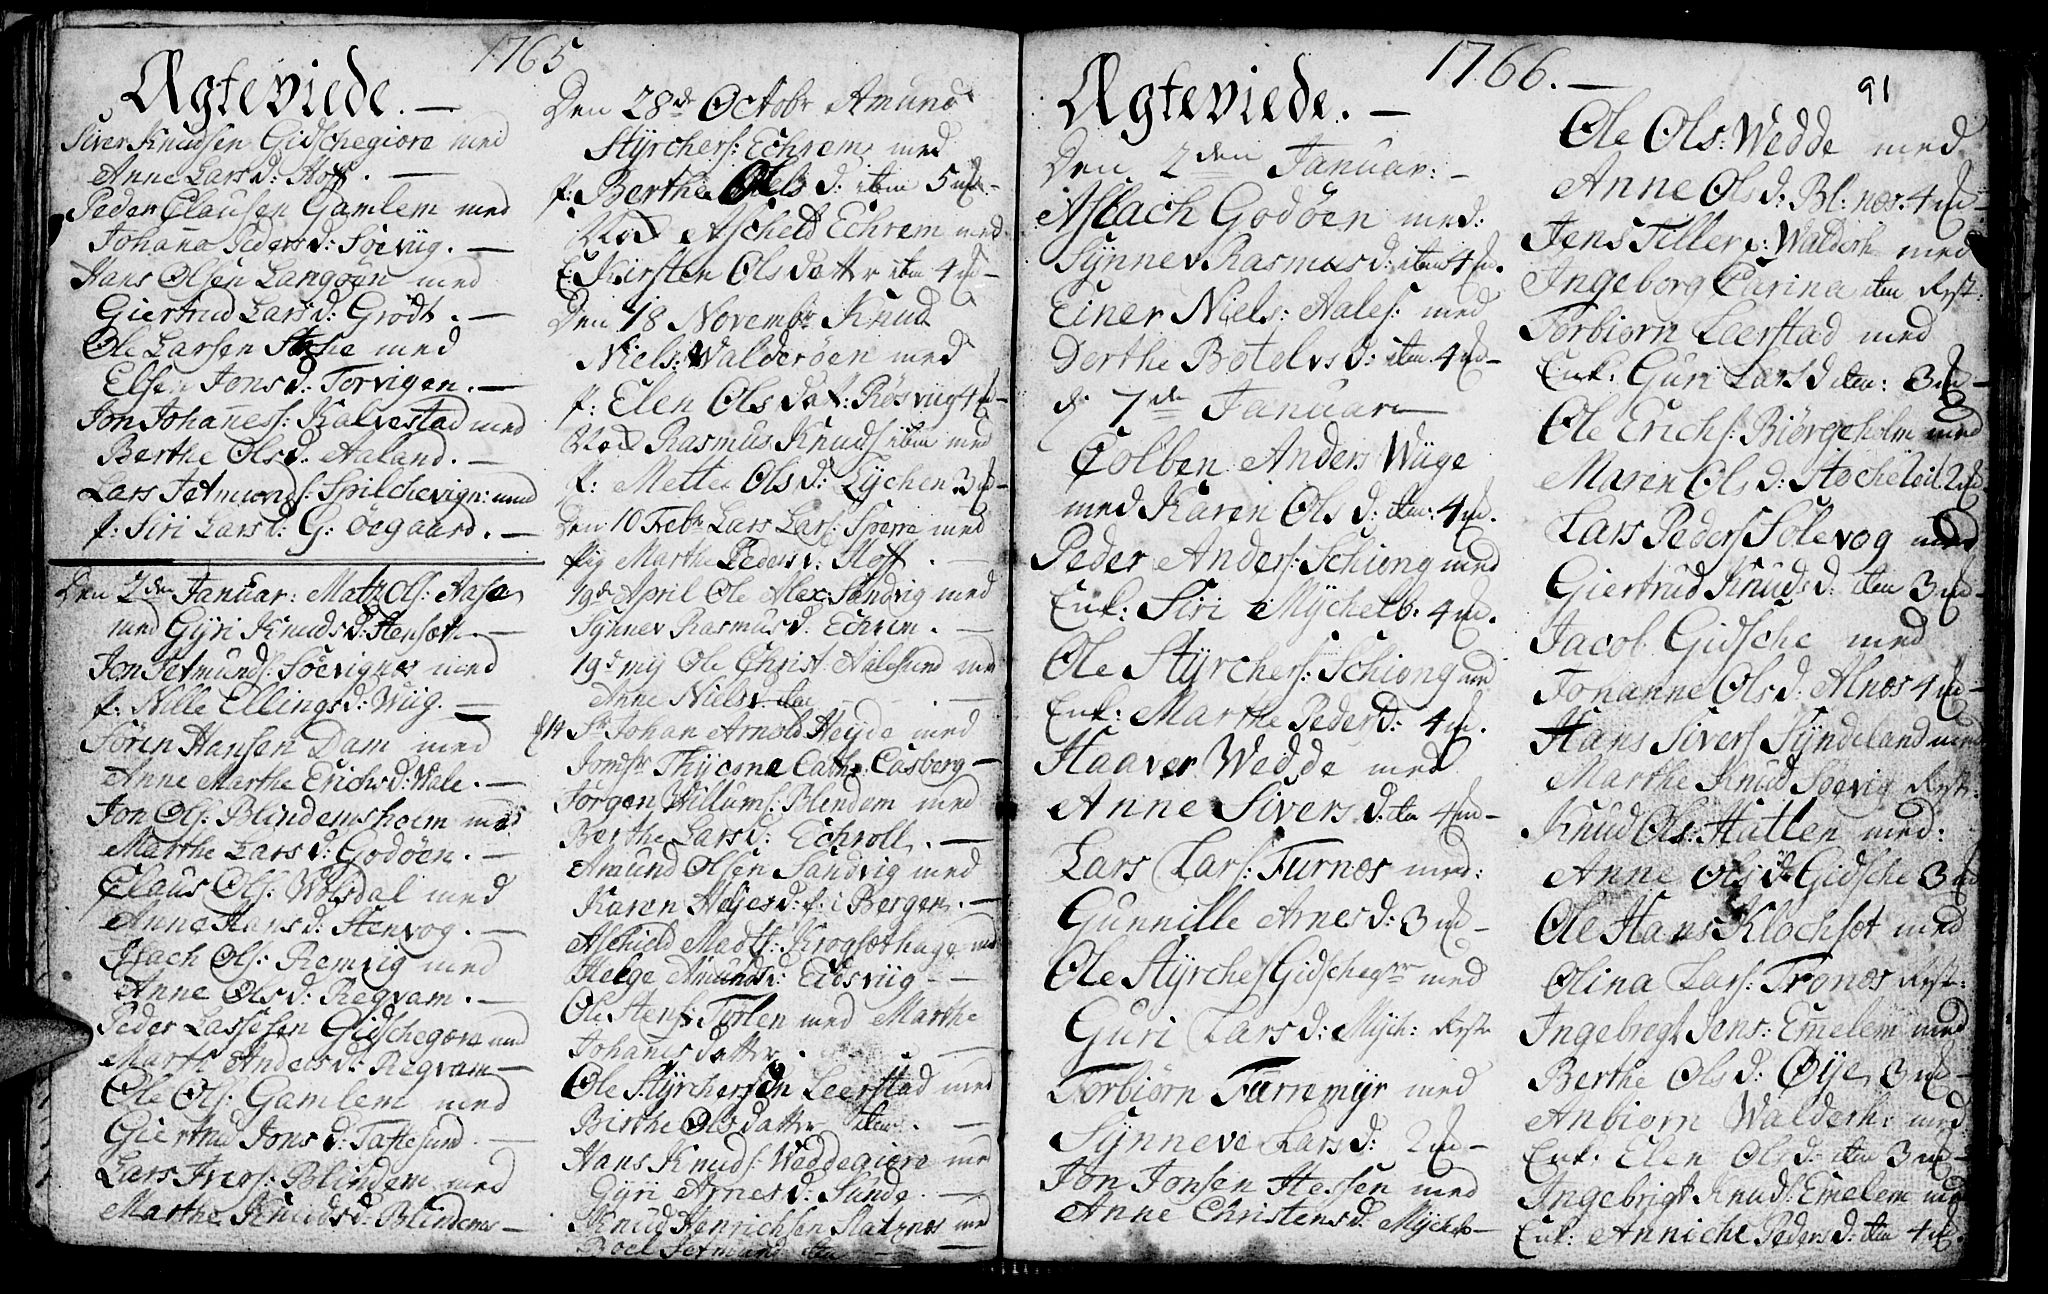 1765
Ægteviede. —
Siver Knudsen Gidschegiore med
Anne Lars d: Hoff. —
Peder Clausen Gamlem med
Johana Peders d: Søeviig. —
Hans Olsen Langøen med
Giertrud Lars d: Grödt. —
Ole Larsen med
Else Jons d: Torvigen. —
Jon Johaness: Kalvestad med
Berthe Ols d. Aaland. —
Lars Jetmunds: Spilchevign: med
p: Siri Lars d: G: Øegaard. —
Den 2den Januar: Matz Ols: Aase
med Gÿri Knuds d: —
Jon Jetmunds: Søevignes med
p: Nille Ellings d: Wiig. —
Søren Hansen Dam med
Anne Marthe Erichs d: Wale. —
Jon Ols: Blindemsholm med
Marthe Lars d: Godøen. —
Claus Ols: Wolsdal med
Anne Hans d: Stenvog. —
Isach Ols: Remvig med
Anne Ols d: Regvam. —
Peder Lassesen Gidschegiøre med
Marth Anders d: Regvam —
Ole Ols: Gamlem med
Giertrud Jons d: Taftesund. —
Lars Ivers: Blindem med
Marthe Knuds d: Blindem —
Den 28de Octobr Amund
Stÿrchers: Echrem med
p: Berthe Ols d: item 5 —
Nod Ascheld Echrem med
E: Kirsten Ols datter item 4 —
Den 18 Novembr Knud
Niels: Walderøen med
p: Elen Ols dat: Røsviig 4 —
Nod Rasmus Knuds item med
p: Mette Ols d: Lÿchen 3 —
Den 10 Febr Lars Lars: Sperre med
Pig Marthe Peders d: Hoff. —
19de April Ole Alex: Sandvig med
Sÿnnev Rasmus d. Echrem. —
19d mÿ Ole Christ. Aalesund med
Anne Niels d. item —
Sr Johan Arnold Heÿde med
Jomfr Cath: Casberg —
Jørgen Willums: Blindem med
Berthe Lars d: Echroll. —
Amund Olsen Sandvig med
Karen d: f: i Bergen. —
Aschield Madts: Krogsæthage med
Helge Amunds d: Eidsviig —
Ole Hens: med Marthe
Johanes datter. —
Ole Stÿrchersen Leerstad med
Birthe Olsdatter item. —
Hans Knuds: Weddegiøre med
Gÿri Arnes d: Sunde. —
Knud Henrichsen Slatnes med
Roel Jetmund item —
1766. —
91
Ægteviede. —
Den 2den Januar: —
Aslach Godøen med:
Sÿnnev Rasmus d: item 4
Einer Niels: Aales: med
Dorthe Botelvs d: item. 4 —
d: 7de Januar
Colben Anders Wiige
med Karen Ols d: item: 4
Peder Anders: Schiong med
Enk: Siri Mÿchelb: 4
Ole Stÿrchers: Schiong med
Enk: Marthe Peders d: 4
Haaver Wedde med
Anne Sivers d. item 4 —
Lars Lars: Furnæs med:
Gunnille Arnes d: 3 —
Ole Stÿrches Gidschegr med
Guri Lars d: Mÿch: Rest
Torbiørn Farremÿr med
Sÿnneve Lars d: 2 —
Jon Jonsen Hessen med
Anne Christens d. Mÿcheb —
Ole Ols: Wedde med
Anne Ols d: Bl: nes. 4 —
Jens Tillers: Walderh med
Ingeborg Carina item Rest:
Torbiørn Leerstad med
Enk: Guri Lars d item: 3 —
Ole Erichs: Biørgeholm med
Maren Ols d: 2
Lars Peders Solevog med
Giertrud Knuds d: item 3 —
Jacob Gidsche med
Johanne Ols d: Alnæs 4 —
Hans Sivers Sÿndeland med
Marthe Knud Søevig Rest:
Knud Ols: Hatlen med:
Anne Ols d: Gidsche 3
Ole Hans Klochsæt med
Olina Lars: Tronæs Rest:
Ingebregt Jens: Emelem med
Berthe Ols d: Øÿe 3 —
Anbiørn Walderh: med
Enk: Elen Ols d: item 3 —
Ingebrigt Knuds: Emelem med
Enk: Anniche Peders d: item 4